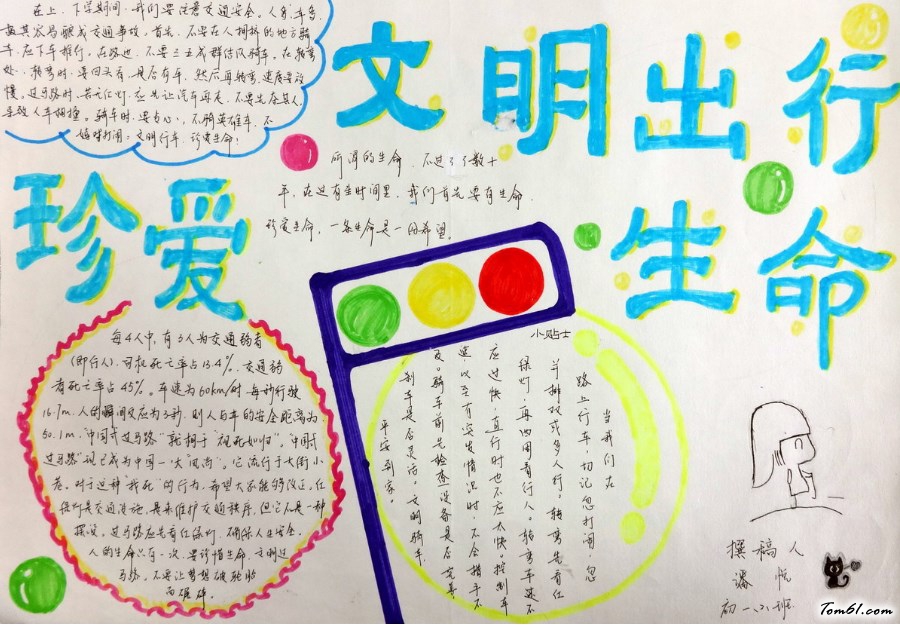 文明出行
珍爱
生命
在上、下学期间,我们要注意交通安全。人多,车多,
故,首先,不要在人拥挤的地方骑
车,应下车推行。在路边,不要三五成群结队骑车。在转弯
处,转弯时,要回头看,是否有车,然后再转弯,速度要放
慢。过马路时,若无红灯,应先让汽车再走,不要
骑车时,要专心,不骑英雄车,不
嬉戏打闹:文明行车,珍爱生命!
所谓的生命,不过是个数十
年,在这有生时间里,我们首先要有生命,
珍爱生命,一条生命是一份希望。
每4人中,有3人为交通弱者
(即行人),司机死亡率占13.4%,交通弱
者死亡率占45%。车速为60km/时,每秒行驶
16.7m,人的瞬间反应为3秒,则人与车的安全距离为
50.1m,“中国式过马路”就相于“视死如归”。“中国式
过马路”现已成为中国一大“风尚”。它流行于大街小
巷。对于这种“找死”的行为,希望大家能够改正,红
绿灯是交通设施,是来维护交通秩序,但它不是一种
摆设。过马路应先看红绿灯,确保人生安全。
人的生命只有一次,要珍惜生命,文明过
马路,不要让梦想被轮胎
而碾碎。
小贴士
当我们在
路上行车,切记忽打闹,忽
并排双或多人行。转弯先看红
绿灯,再四周看行人。转弯车速不
应过快,直行时也不应太快。控制车
速,以至有突发情况时,不会措手不
及。骑车前先检查设备是否完善
刹车是否灵活。文明骑车
平安到家。
撰稿人
潘悦
初一八班
Tom61.com